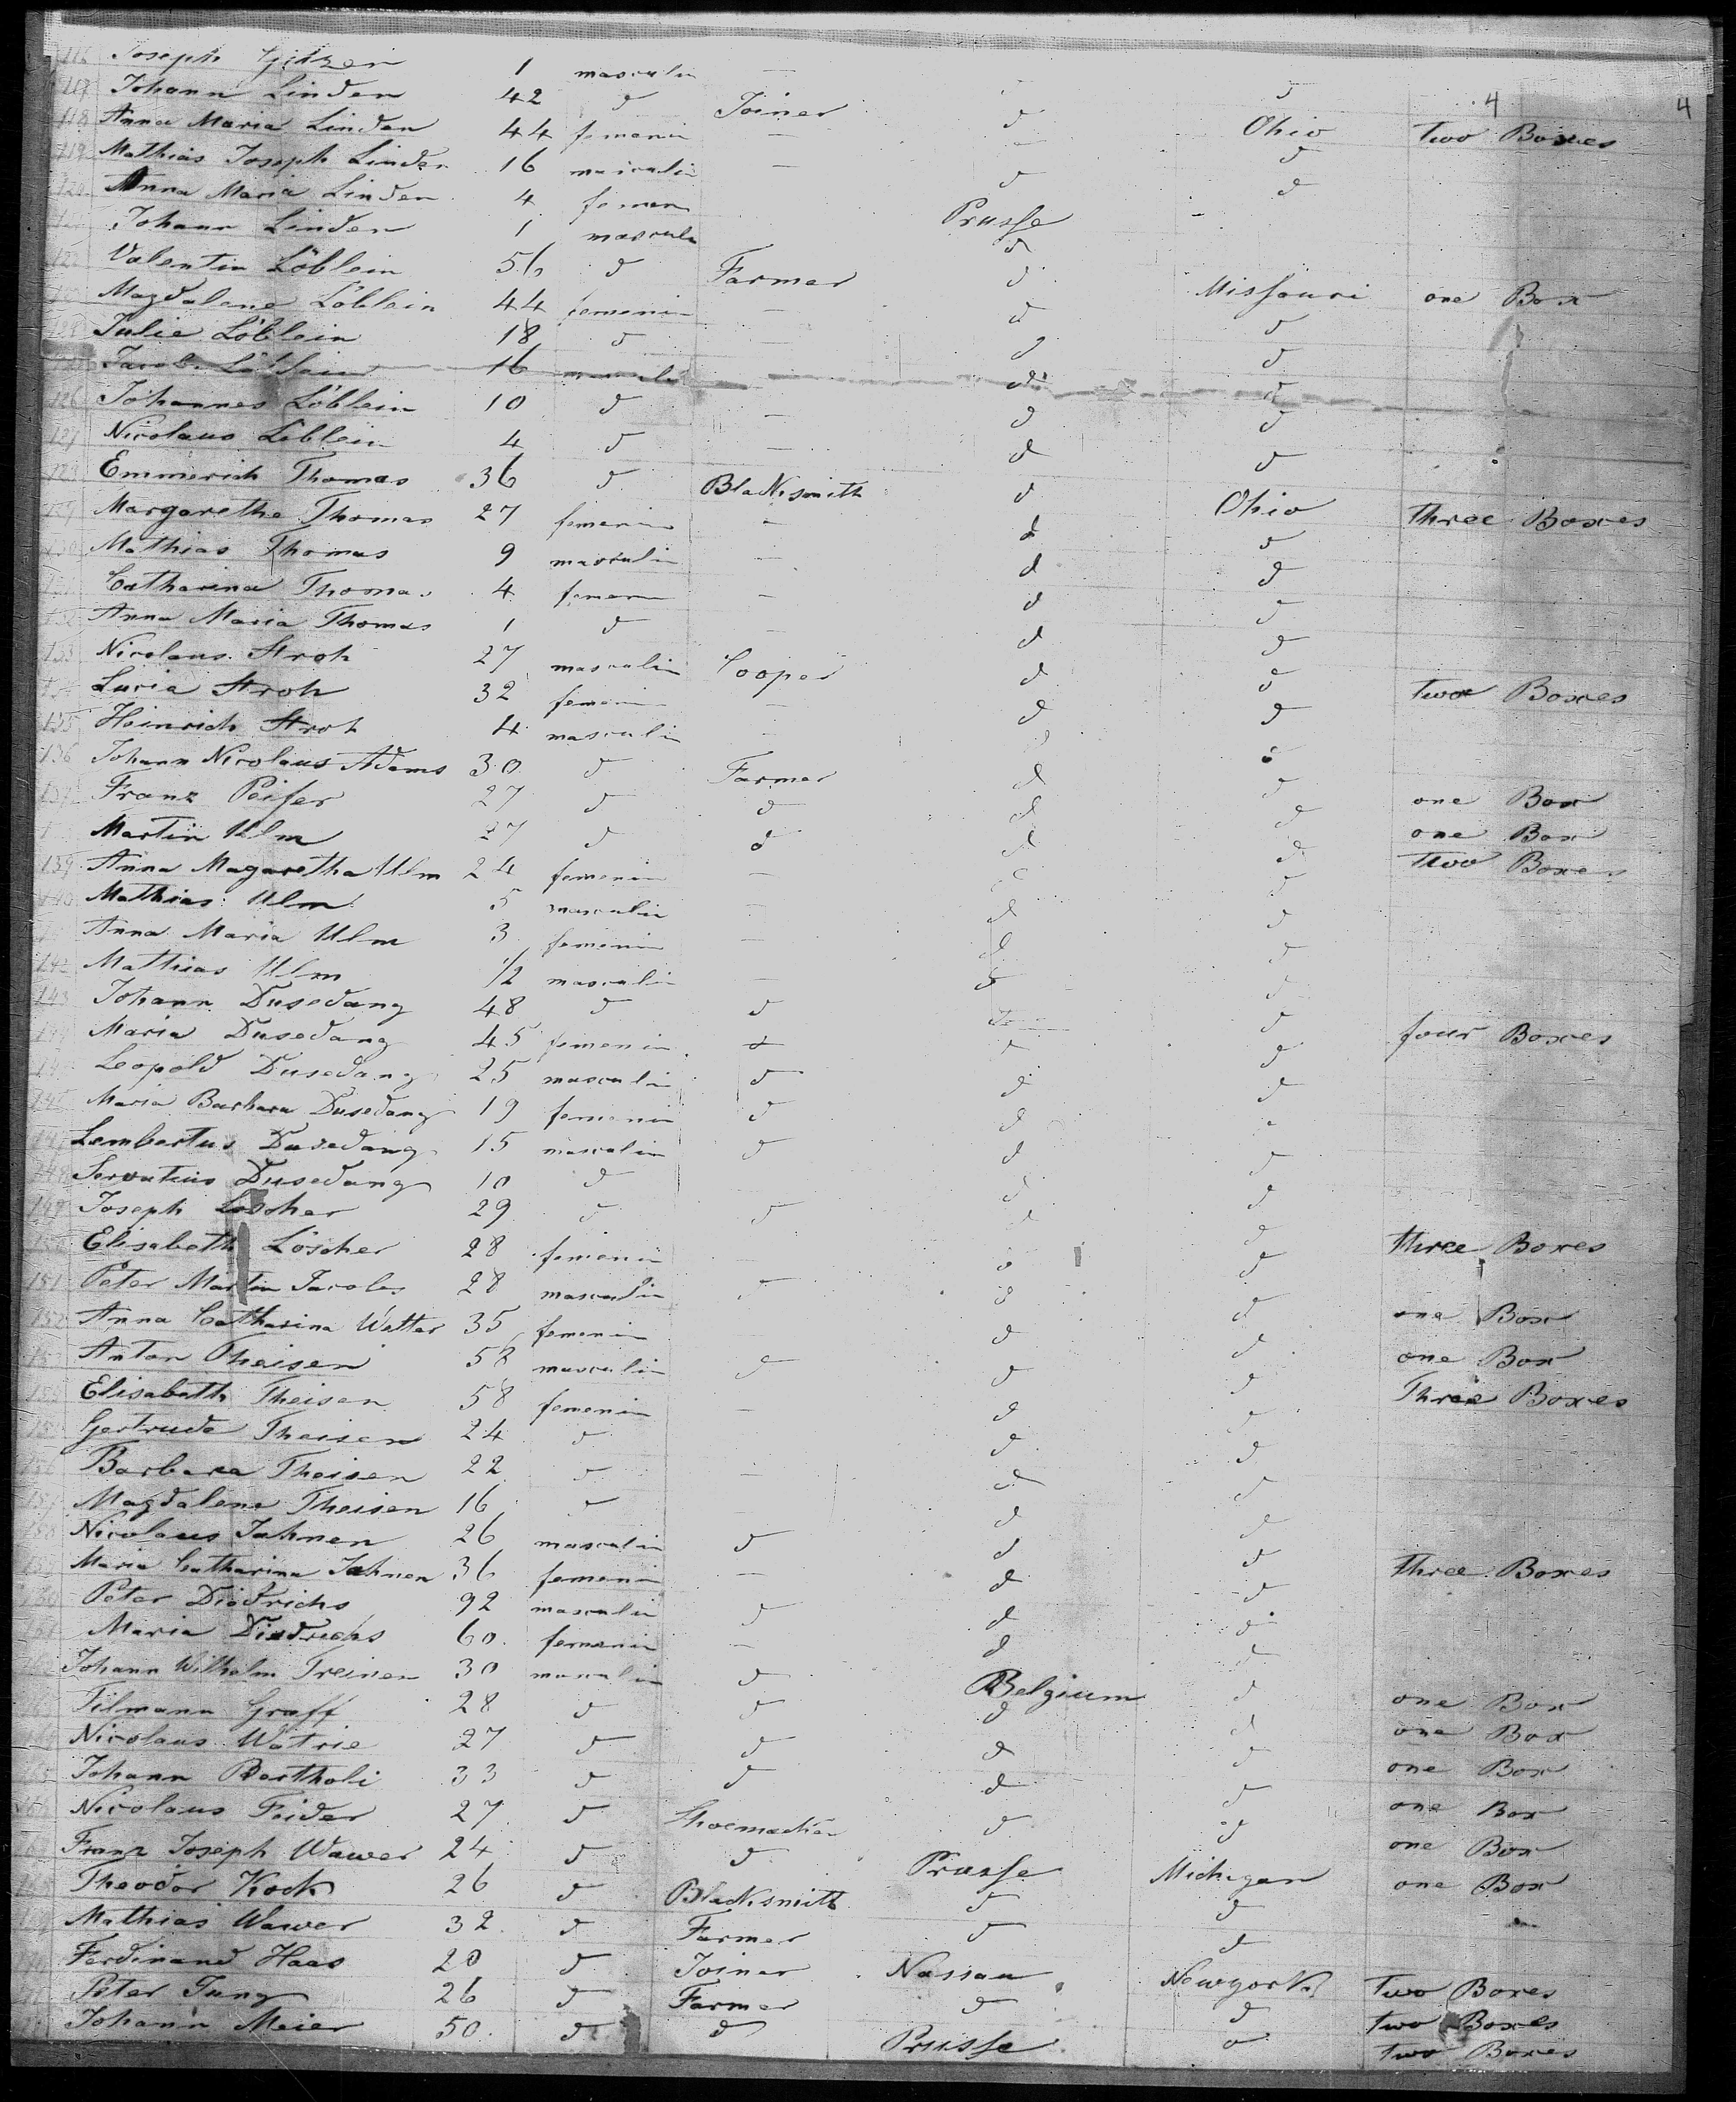 4 4
116 Joseph 1 masculin — d
117 Johann Linden 42 d Joiner d Ohio two Boxes
118 Anna Maria Linden 44 femenin — d
119 Mathias Joseph Linden 16 masculin — d d
120 Anna Maria Linden 4 femen Prusse
Johann Linden 1 masculi d
122 Valentin Löblein 56 d Farmer d Missouri one Box
Magdalene Löblein 44 femenin — d d
Julie Löblein 18 d — d d
Jacob Löblein 16 d d
126 Johannes Löblein 10 d — d d
127 Nicolaus Löblein 4 d — d d
Emmerich Thomas 36 d Blaksmith d Ohio three Boxes
Margarethe Thomas 27 femenin - d d
Mathias Thomas 9 masculin — d d
Catharina Thomas 4 femenin — d d
132 Anna Maria Thomas 1 d — d d
133 Nicolaus Stroh 27 masculin Cooper d d two Boxes
Lucia Stroh 32 femenin — d d
135 Heinrich Stroh 4 masculin — d
136 Johann Nicolaus Adams 30 d Farmer d d one Box
137 Franz Peifer 27 d d d d one Box
Martin Ulm 27 d d d d two Boxes
139 Anna Magaretha Ulm 24 femenin — d d
140 Mathias Ulm 5 masculin — d d
Anna Maria Ulm 3 femenin — d d
142 Mathias Ulm 1/2 masculin — d d
143 Johann Dusedang 48 d d d d four Boxes
Maria Dusedang 45 femenin d d d
Leopold Dusedang 25 masculin d d d
Maria Barbara Dusedang 19 femenin d d
147 Lambertus Dusedang 15 masculin d d d
148 Servatius Dusedang 10 d d d
149 Joseph Löscher 29 d d d d three Boxes
Elisabeth Löscher 28 femenin d d
151 Peter Martin Jacobs 28 masculin d d one Box
152 Anna Catharina Wetter 35 femenin — d d one Box
Anton Theisen 58 masculin d d d Three Boxes
Elisabeth Theisen 58 femenin — d d
Gertrude Theisen 24 d — d d
156 Barbara Theisen 22 d — d d
157 Magdalena Theisen 16 d — d d
Nicolaus Jahnen 26 masculin d d d three Boxes
Maria Catharina Jahnen 36 femenin — d d
160 Peter Diedrichs 92 masculin d d d
Maria Diedrichs 60 femenin — d d
Johann Wilhelm Treinen 30 masculin d Belgium d one Box
Tilmann Graff 28 d d d d one Box
Nicolaus Watrie 27 d d d d one Box
Johann Bartholi 33 d d d d one Box
Nicolaus Feider 27 d Shoemacker d d one Box
Franz Joseph Wawer 24 d d Prusse Michigan one Box
Theodor Kock 26 d Blacksmith d d
Mathias Wawer 32 d Farmer d d
Ferdinand Haas 20 d Joiner Nassau Newyork Two Boxes
Peter Jung 26 d Farmer d d two Boxes
Johann Meier 50 d d Prusse d two Boxes